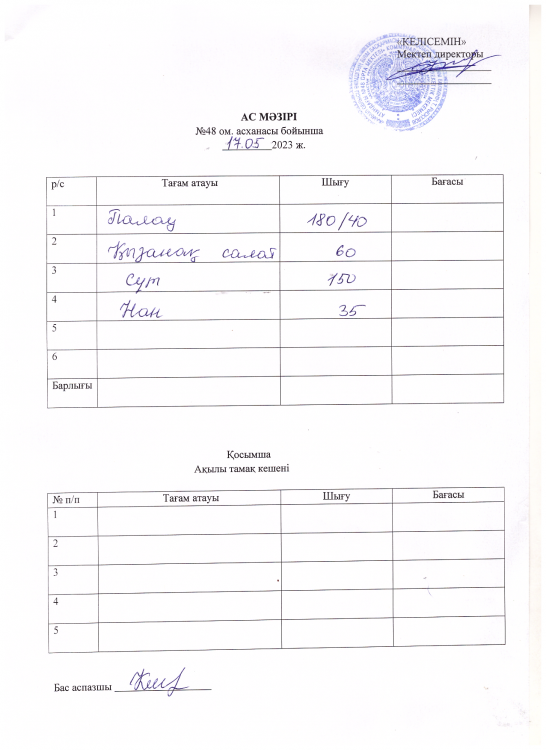 «КЕЛІСЕМІН»
Мектеп директоры
АС МӘЗІРІ
№48 ом. асханасы бойынша
17.05 2023 ж.
р/с Тағам атауы Шығу Бағасы
1 Палау 180/40
2 Қызанақ салат 60
3 Сүт 150
4 Нан 35
5
6
Барлығы
Қосымша
Ақылы тамақ кешені
№ п/п Тағам атауы Шығу Бағасы
1
2
3
4
5
Бас аспазшы